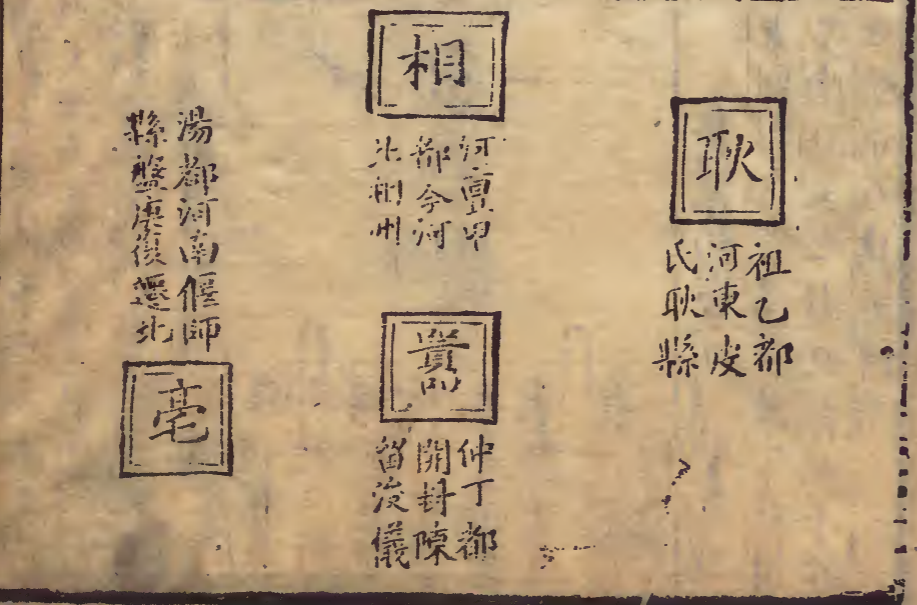 耿
祖乙都
河東皮
氏耿縣
相
河亶甲
都今河
北相州
囂
仲丁都
開封陳
留浚儀
湯都河南偃師
縣盤庚後遷此
亳